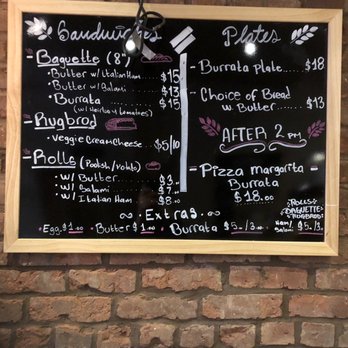 Sandwiches
- Baguette (8")
• Butter w/ Italian Ham .... $15
• Butter w/ Salami ...... $13
• Burrata ...... $15
(w/ Heirloom tomatoes)
- Rugbrod
• Veggie Cream Cheese .... $5/10
- Rolls (Poolish/Potato)
• w/ Butter ........ $3
• w/ Salami ....... $7
• w/ Italian Ham ... $8
~ Extras ~
• Egg $1.00 • Butter $1.00 • Burrata $5./3.00
Plates
- Burrata plate ..... $18
- Choice of Bread
w. Butter ...... $13
AFTER 2 PM
- Pizza margarita -
Burrata
$18.00
Rolls
Baguette
Rugbrod
Ham/
Salami $5./3.00